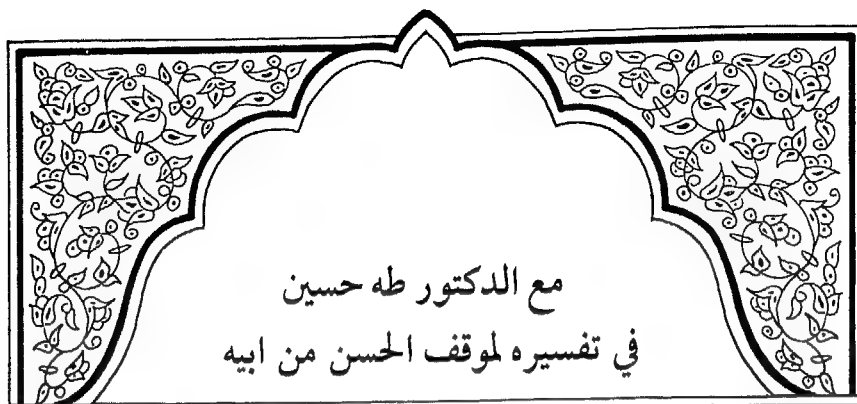 مع الدكتور طه حسين
في تفسيره لموقف الحسن من ابيه